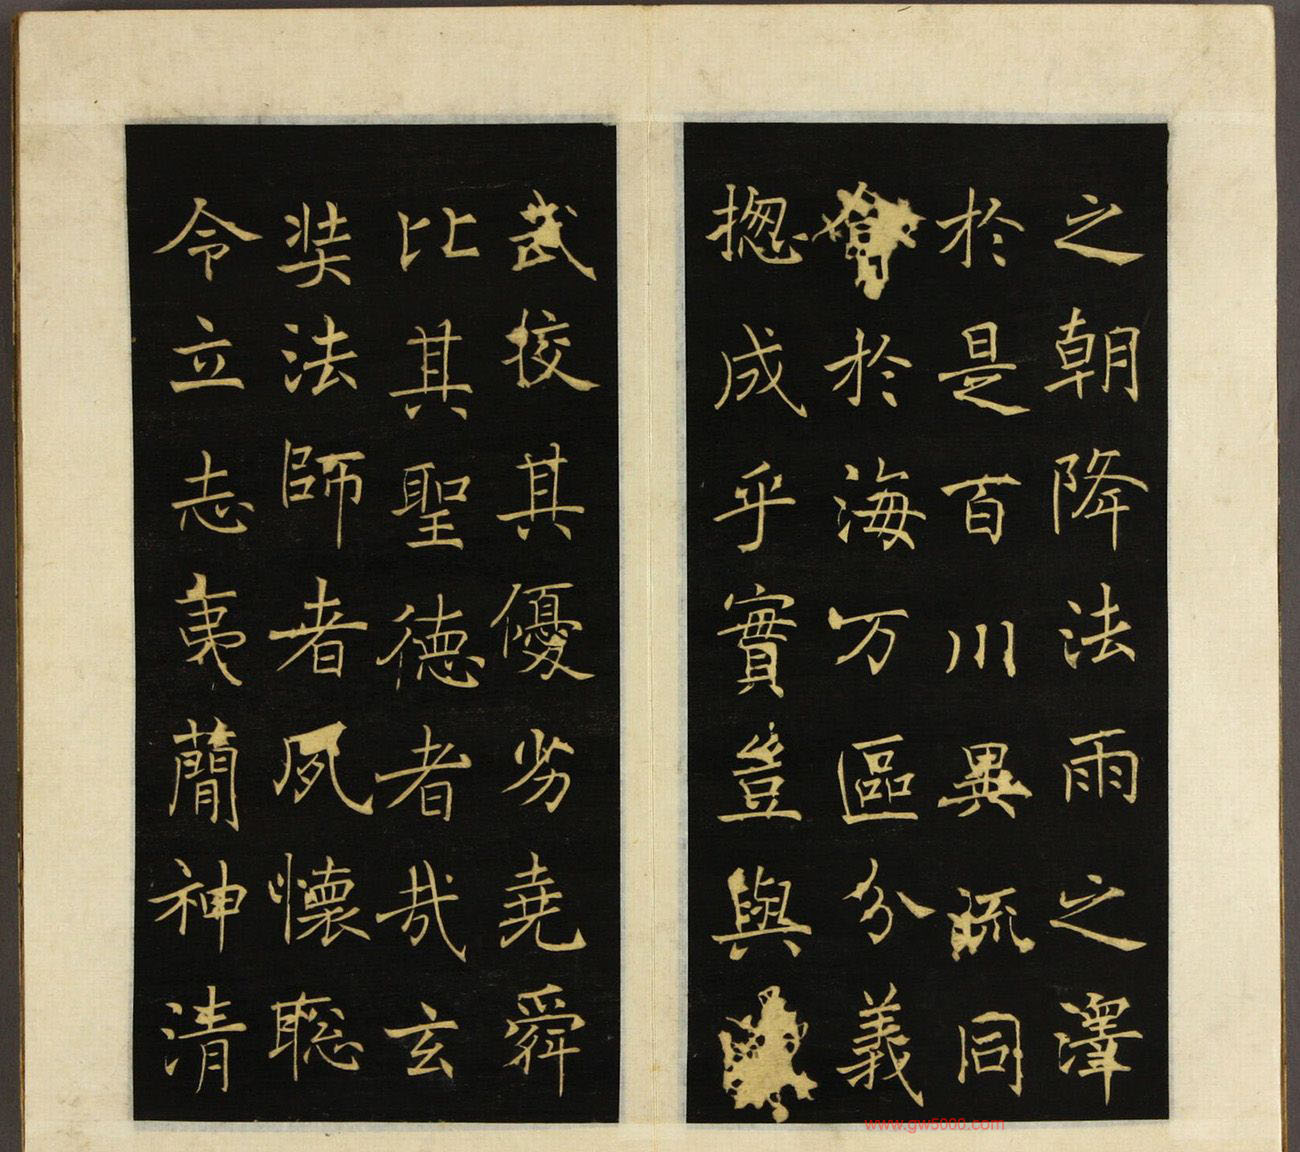 之朝降法雨之澤
於是百川異流同
於海万區分義
揔成乎實豈與
武挍其優劣堯舜
比其聖德者哉玄
奘法師者夙懷聡
令立志夷蕳神清
www.gw5000.com